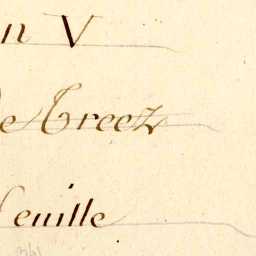 n V
e Creez
feuille